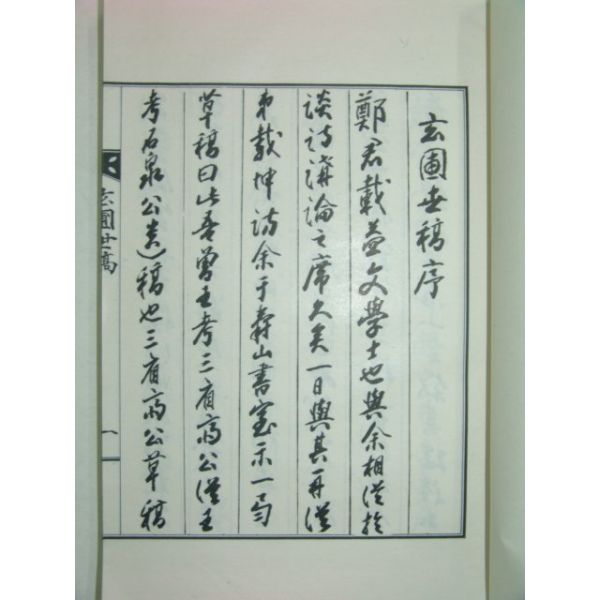 玄圃世稿序
鄭君載益文學士也與余相從於
談詩講論之席久矣一日與其再從
弟載坤訪余于壽山書室示一
草稿曰此吾曾王考三省齋公從王
考石泉公遺稿也三省齋公草稿
玄圃世稿
一